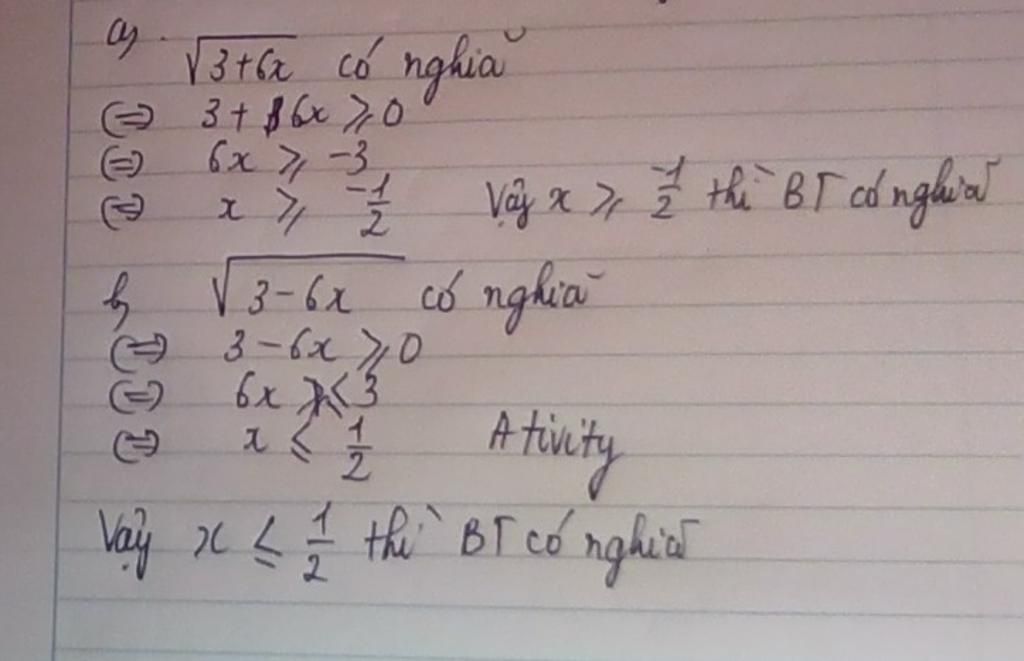 a)
√3+6x có nghĩa
(=) 3+6x ⩾ 0
(=) 6x ⩾ -3
(=) x ⩾ -1/2 Vậy x ⩾ -1/2 thì BT có nghĩa
b) √3-6x có nghĩa
(=) 3-6x ⩾ 0
(=) 6x < 3
(=) x ⩽ 1/2 Ativity
Vậy x ⩽ 1/2 thì BT có nghĩa